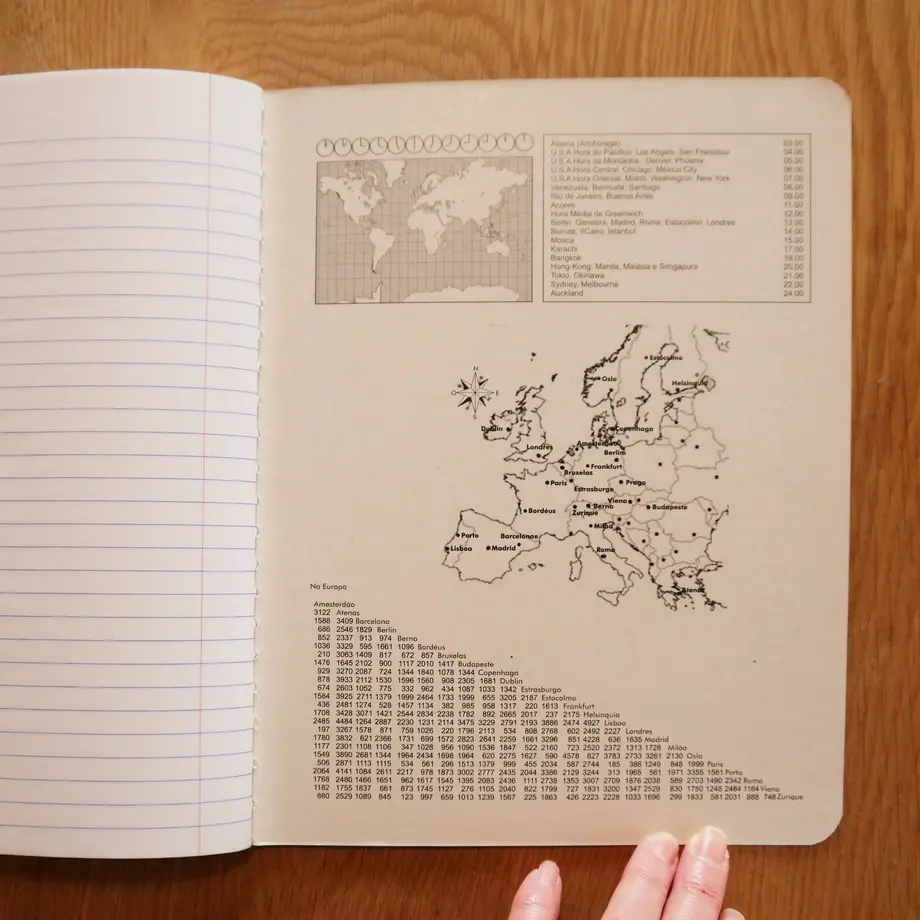 Alasca (Anchorage) 03.00
U.S.A Hora do Pacífico. Los Angels, San Francisco 04.00
U.S.A Hora da Montanha. Denver, Phoenix 05.00
U.S.A Hora Central. Chicago, México City 06.00
U.S.A Hora Oriental. Miami, Washington, New York 07.00
Venezuela, Bermuda, Santiago 08.00
Rio de Janeiro, Buenos Aires 09.00
Acores 11.00
Hora Média de Greenwich 12.00
Berlin, Genebra, Madrid, Rome, Estocolmo, Londres 13.00
Beirute, Cairo, Istanbul 14.00
Mosca 15.00
Karachi 17.00
Bangkok 19.00
Hong-Kong, Manila, Malásia e Simgapura 20.00
Tokio, Okinawa 21.00
Sydney, Melbourne 22.00
Auckland 24.00
Estocolmo
N
Oslo
Helsinquia
O E
S
Dublin
Copenhaga
Londres
Amesterdão
Berlim
Bruxelas
Frankfurt
Paris
Praga
Estrasburgo
Viena
Berna
Budapeste
Bordéus
Zurique
Milão
Porto
Barcelonoe
Lisboa
Madrid
Roma
Atenas
Na Europa
Amesterdão
3122 Atenas
1588 3409 Barcelona
686 2546 1829 Berlin
852 2337 913 974 Berna
1036 3329 595 1661 1096 Bordéus
210 3063 1409 817 672 857 Bruxelas
1476 1645 2102 900 1117 2010 1417 Budapeste
929 3270 2087 724 1344 1840 1078 1344 Copenhaga
878 3933 2112 1530 1596 1560 908 2305 1681 Dublin
674 2603 1052 775 332 962 434 1087 1033 1342 Estrasburgo
1584 3925 2711 1379 1999 2464 1733 1999 655 3205 2187 Estocolmo
436 2481 1274 528 1457 1134 382 985 958 1317 220 1613 Frankfurt
1708 3428 3071 1421 2544 2834 2238 1782 892 2665 2017 237 2175 Helsinquia
2485 4484 1264 2887 2230 1231 2114 3475 3229 2791 2193 3886 2474 4927 Lisboa
197 3267 1578 871 759 1026 220 1796 2113 534 808 2768 602 2492 2227 Londres
1780 3832 621 2366 1731 699 1572 2823 2641 2259 1661 3296 851 4228 636 1635 Madrid
1177 2301 1108 1106 347 1028 956 1090 1536 1847 522 2160 723 2520 2372 1313 1728 Milão
1549 3890 2681 1344 1964 2434 1698 1964 620 2275 1627 590 4578 827 3783 2733 3261 2130 Oslo
506 2871 1113 1115 534 561 296 1513 1379 999 455 2034 587 2744 185 386 1249 848 1999 Paris
2064 4141 1084 2611 2217 978 1873 3002 2777 2435 2044 3388 2129 3244 313 1965 561 1971 3355 1561 Porto
1768 2480 1466 1651 962 1617 1545 1395 2083 2436 1111 2738 1353 3007 2709 1876 2038 589 2703 1490 2342 Roma
1182 1755 1837 661 873 1745 1127 276 1105 2040 822 1799 727 1831 3200 1347 2529 830 1780 1248 2484 1164 Viena
880 2529 1089 845 123 997 659 1013 1239 1567 225 1863 426 2223 2228 1033 1696 299 1833 581 2031 888 748 Zurique